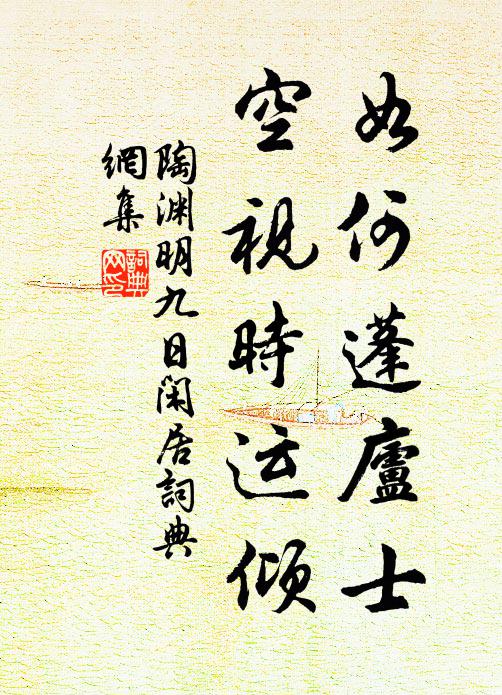 如何蓬廬士
空視時运傾
陶渊明九日闲居詞典
網集
詞典
网印